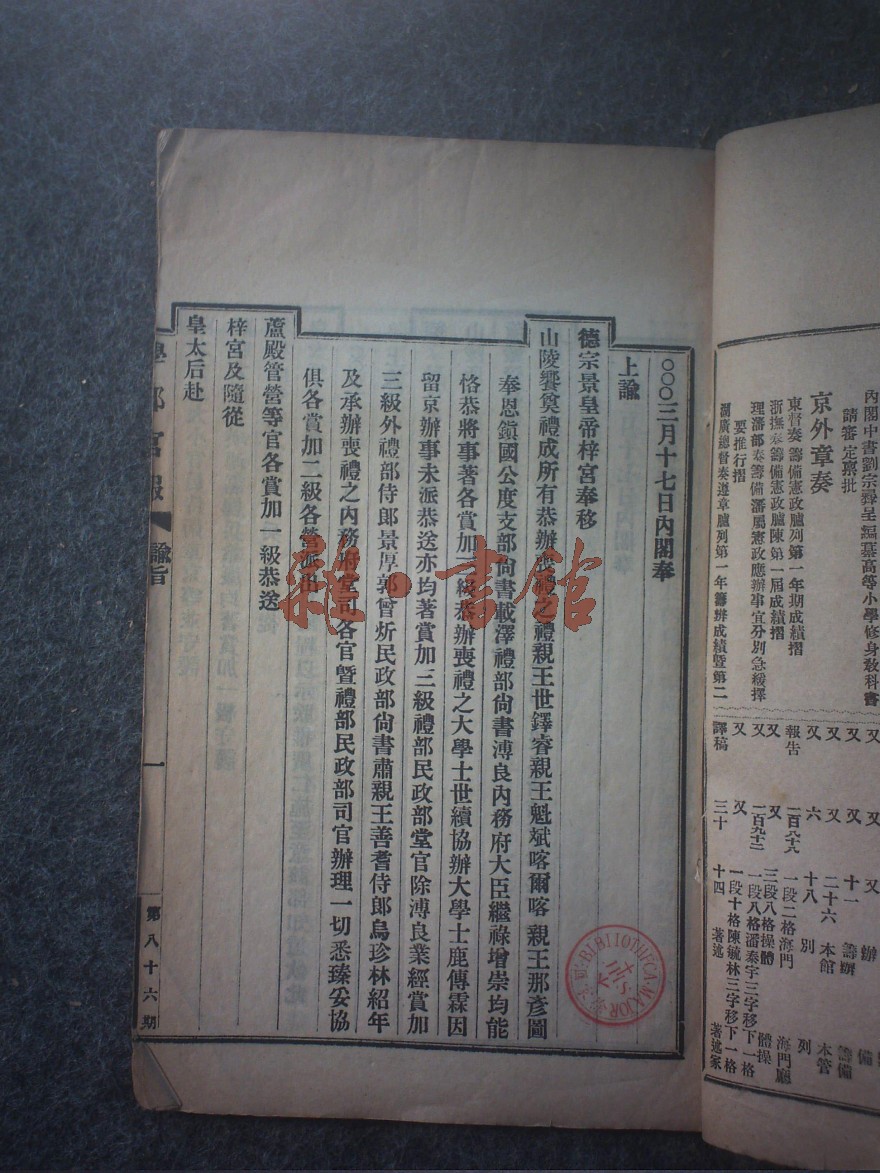 內閣中書劉宗彝呈編纂高等小學修身教科書
請審定稟批
京外章奏
東督奏籌備憲政臚列第一年期成績摺
浙撫奏籌備憲政臚陳第一屆成績摺
理藩部奏籌備藩屬憲政應辦事宜分別急緩擇
要推行摺
湖廣總督奏遵章臚列第一年籌辦成績暨第二
又 又 又 辦 備
又 又 十一 籌辦 籌備
又 又 二十六 本館 本管
又 六 十八 別 列
報告 一百八十八 一段二格海門 海門廳
又 又 三段八格操體 體操
又 一百九十二 一段八格潘泰宇三字移下一格
又 又 一段十格陳毓林三字移下一格
譯稿 三十 十四 著述 著述家
○○○三月十七日內閣奉
上諭
德宗景皇帝梓宮奉移
山陵饗奠禮成所有恭辦喪禮之禮親王世鐸睿親王魁斌喀爾喀親王那彥圖
奉恩鎮國公度支部尚書載澤禮部尚書溥良內務府大臣繼祿增崇均能
恪恭將事著各賞加二級恭辦喪禮之大學士世續協辦大學士鹿傳霖因
留京辦事未派恭送亦均著賞加三級禮部民政部堂官除溥良業經賞加
三級外禮部侍郎景厚郭曾炘民政部尚書肅親王善耆侍郎烏珍林紹年
及承辦喪禮之內務府堂司各官暨禮部民政部司官辦理一切悉臻妥協
俱各賞加二級各營派出
蘆殿管營等官各賞加一級恭送
梓宮及隨從
皇太后赴
學部官報
諭旨
一
第八十六期
雜·書館
BIBLIOTHECA MAJOR